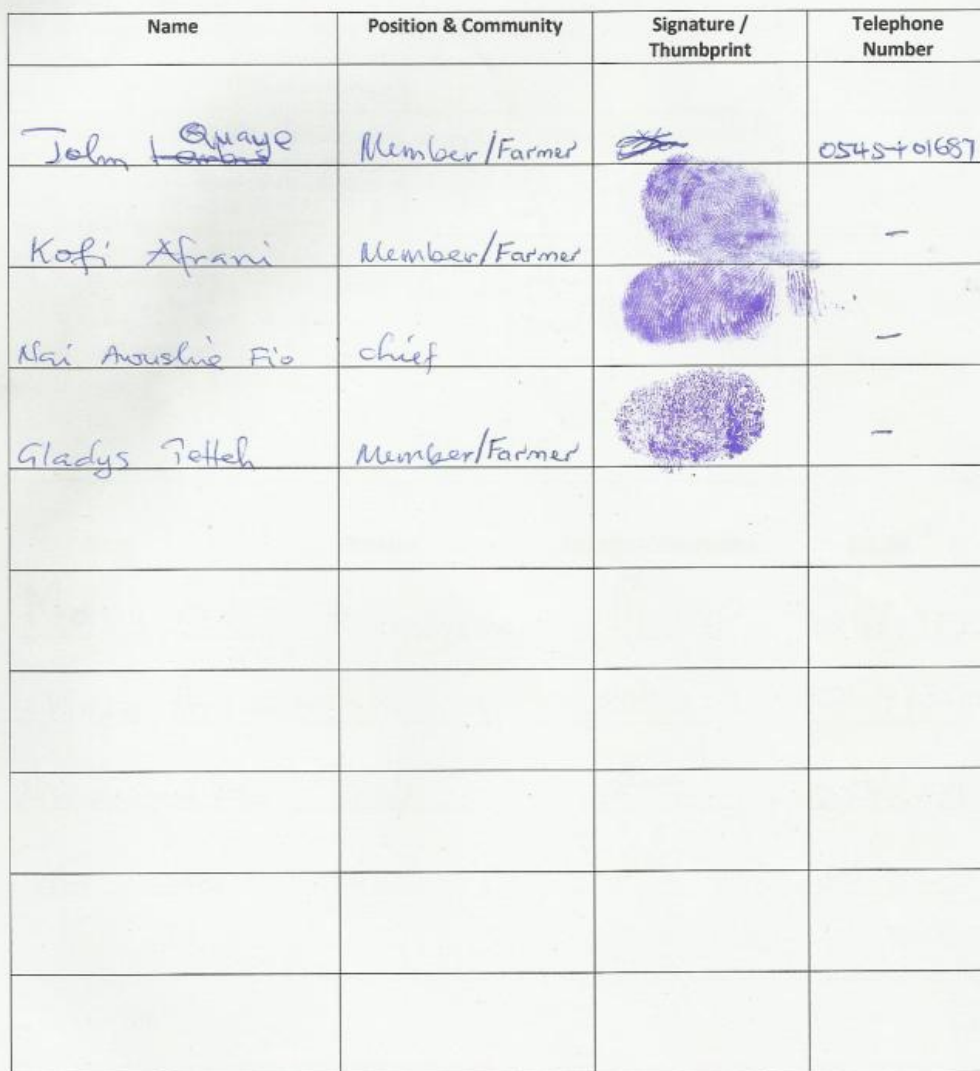 Name Position & Community Signature / Thumbprint Telephone Number
John Quaye Member/Farmer
Kofi Afrani Member/Farmer –
Nai Awushie Fio chief –
Gladys Tetteh Member/Farmer –